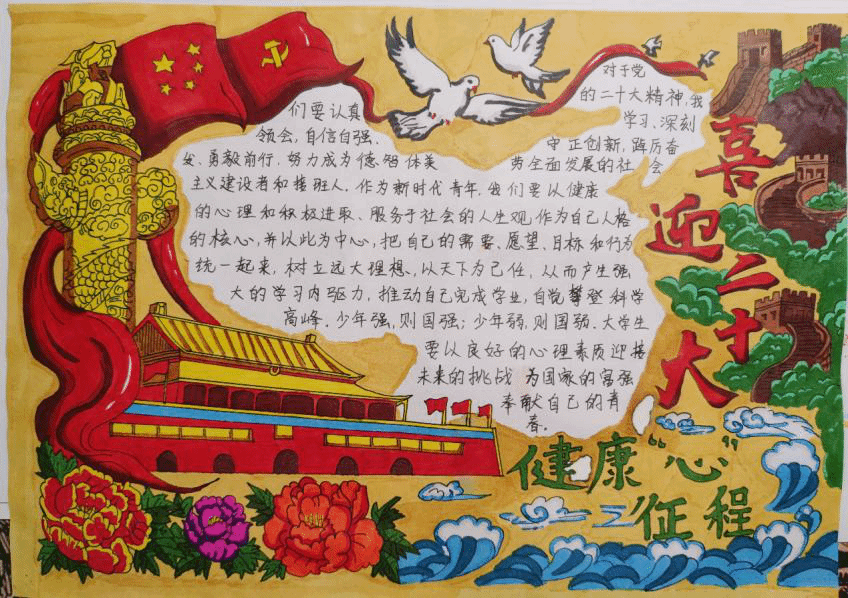 对于党
的二十大精神，我
们要认真
学习、深刻
领会，自信自强、
守正创新，踔厉奋
发、勇毅前行，努力成为德智体美
劳全面发展的社会
主义建设者和接班人。作为新时代青年，我们要以健康
的心理和积极进取、服务于社会的人生观作为自己人格
的核心，并以此为中心，把自己的需要、愿望、目标和行为
统一起来，树立远大理想，以天下为己任，从而产生强
大的学习内驱力，推动自己完成学业，自觉攀登科学
高峰。少年强，则国强；少年弱，则国弱。大学生
要以良好的心理素质迎接
未来的挑战 为国家的富强
奉献自己的青
春。
喜迎二十大
健康“心”
征程